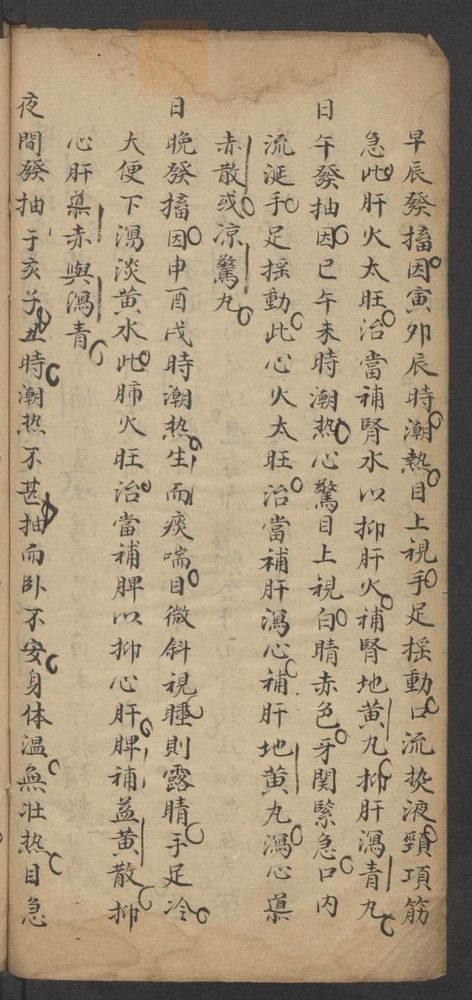 早辰發搐因寅卯辰時潮熱目上視手足搖動口流挾液頸項筋
急此肝火太旺治當補腎水以抑肝火補腎地黄丸抑肝瀉青丸
日午發抽因巳午未時潮热心驚目上視白睛赤色牙関緊急口内
流涎手足搖動此心火太旺治當補肝瀉心補肝地黄丸瀉心導
赤散或凉驚丸
日晩發搐因申酉戌時潮热生而痰喘目微斜視睡則露睛手足冷
大便下瀉淡黄水此肺火旺治當補脾以抑心肝脾補益黄散抑
心肝導赤與瀉青
夜間發抽于亥子丑時潮热不甚抽而卧不安身体温無壮热目急